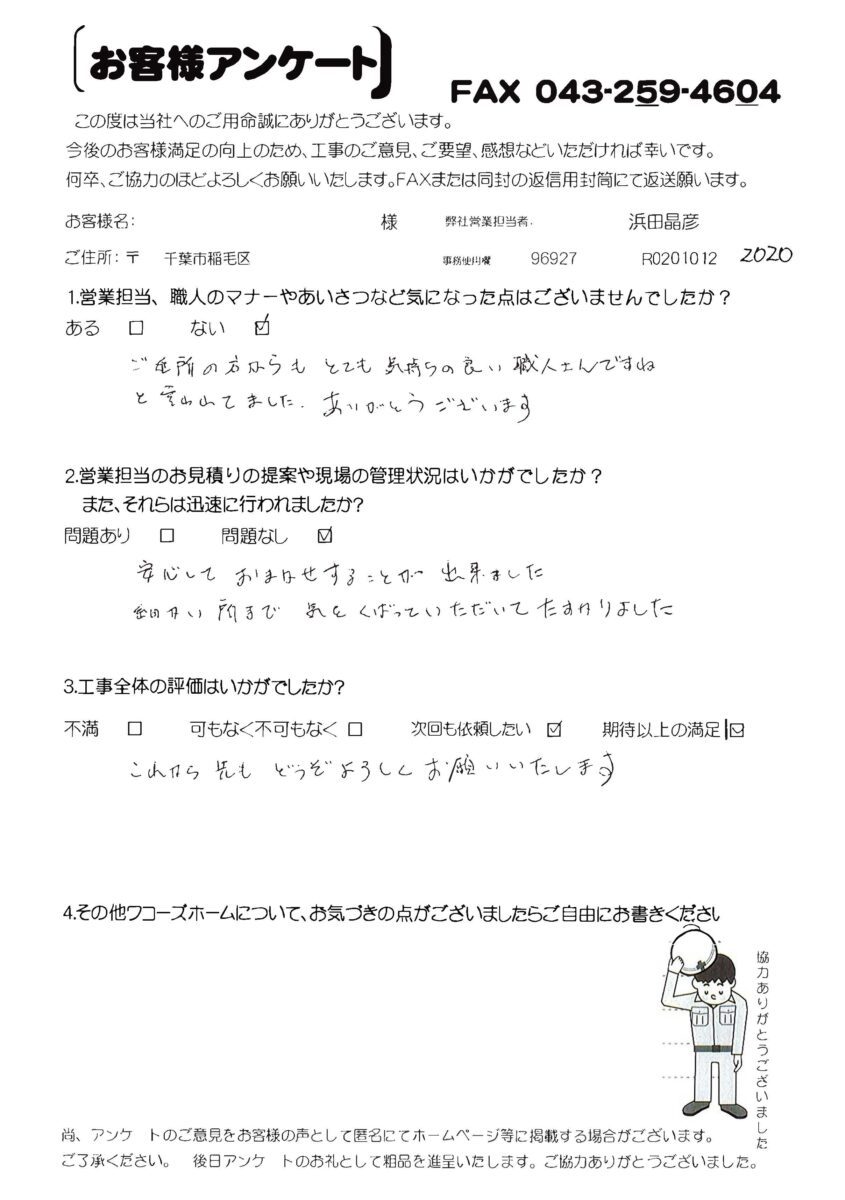 お客様アンケート
FAX 043-259-4604
この度は当社へのご用命誠にありがとうございます。
今後のお客様満足の向上のため、工事のご意見、ご要望、感想などいただければ幸いです。
何卒、ご協力のほどよろしくお願いいたします。FAXまたは同封の返信用封筒にて返送願います。
お客様名: 様 弊社営業担当者. 浜田晶彦
ご住所: 〒 千葉市稲毛区 事務使用欄 96927 R0201012 2020
1.営業担当、職人のマナーやあいさつなど気になった点はございませんでしたか？
ある □ ない ☑
ご近所の方からも とても 気持ちの良い 職人さんですね
と 言われてました. ありがとうございます
2.営業担当のお見積りの提案や現場の管理状況はいかがでしたか？
また、それらは迅速に行われましたか?
問題あり □ 問題なし ☑
安心して おまかせすることが 出来ました
細かい 所まで 気をくばっていただいて たすかりました
3.工事全体の評価はいかがでしたか?
不満 □ 可もなく不可もなく □ 次回も依頼したい ☑ 期待以上の満足 ☑
これから 先も どうぞよろしく お願いいたします
4.その他ワコーズホームについて、お気づきの点がございましたらご自由にお書きください
協力ありがとうございました
尚、アンケートのご意見をお客様の声として匿名にてホームページ等に掲載する場合がございます。
ご了承ください。 後日アンケートのお礼として粗品を進呈いたします。ご協力ありがとうございました。